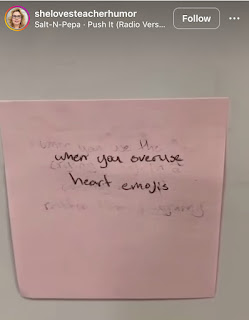 shelovesteacherhumor
Salt-N-Pepa · Push It (Radio Vers...
Follow
when you overuse
heart emojis